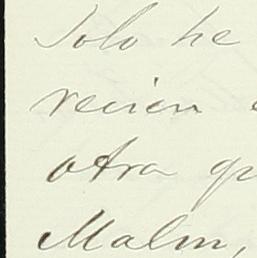 Solo he
recien
otra
Malm,